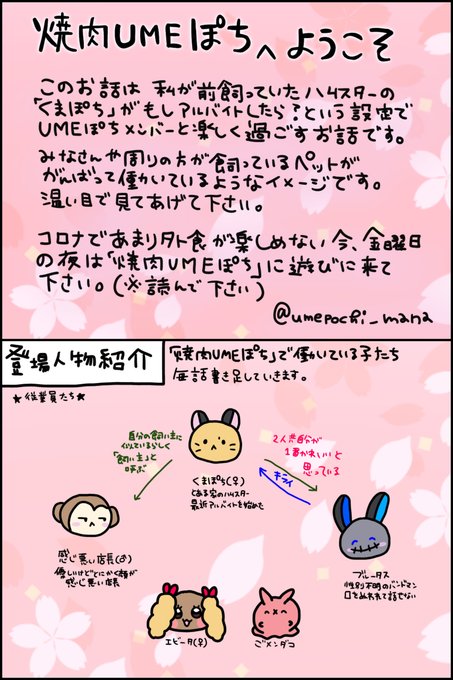 焼肉UMEぽちへようこそ
このお話は 私が前飼っていたハムスターの
「くまぽち」がもしアルバイトしたら？という設定で
UMEぽちメンバーと楽しく過ごすお話です。
みなさんや周りの方が飼っているペットが
がんばって働いているようなイメージです。
温い目で見てあげて下さい。
コロナであまり外食が楽しめない今、金曜日
の夜は「焼肉UMEぽち」に遊びに来て
下さい。(※読んで下さい)
@umepochi_mana
登場人物紹介
「焼肉UMEぽち」で働いている子たち
毎話書き足していきます。
★従業員たち★
自分の飼い主に
似ているらしく
「飼い主」と
呼ぶ
2人共自分が
1番かわいいと
思っている
キライ
くまぽち(♀)
とある家のハムスター
最近アルバイトを始めた
感じ悪い店長(♂)
優しいけどとにかく顔が
感じ悪い店長
ブルータス
性別不明のバンドマン
口をぬわれてて話せない
エビータ(♀)
ごメンダコ